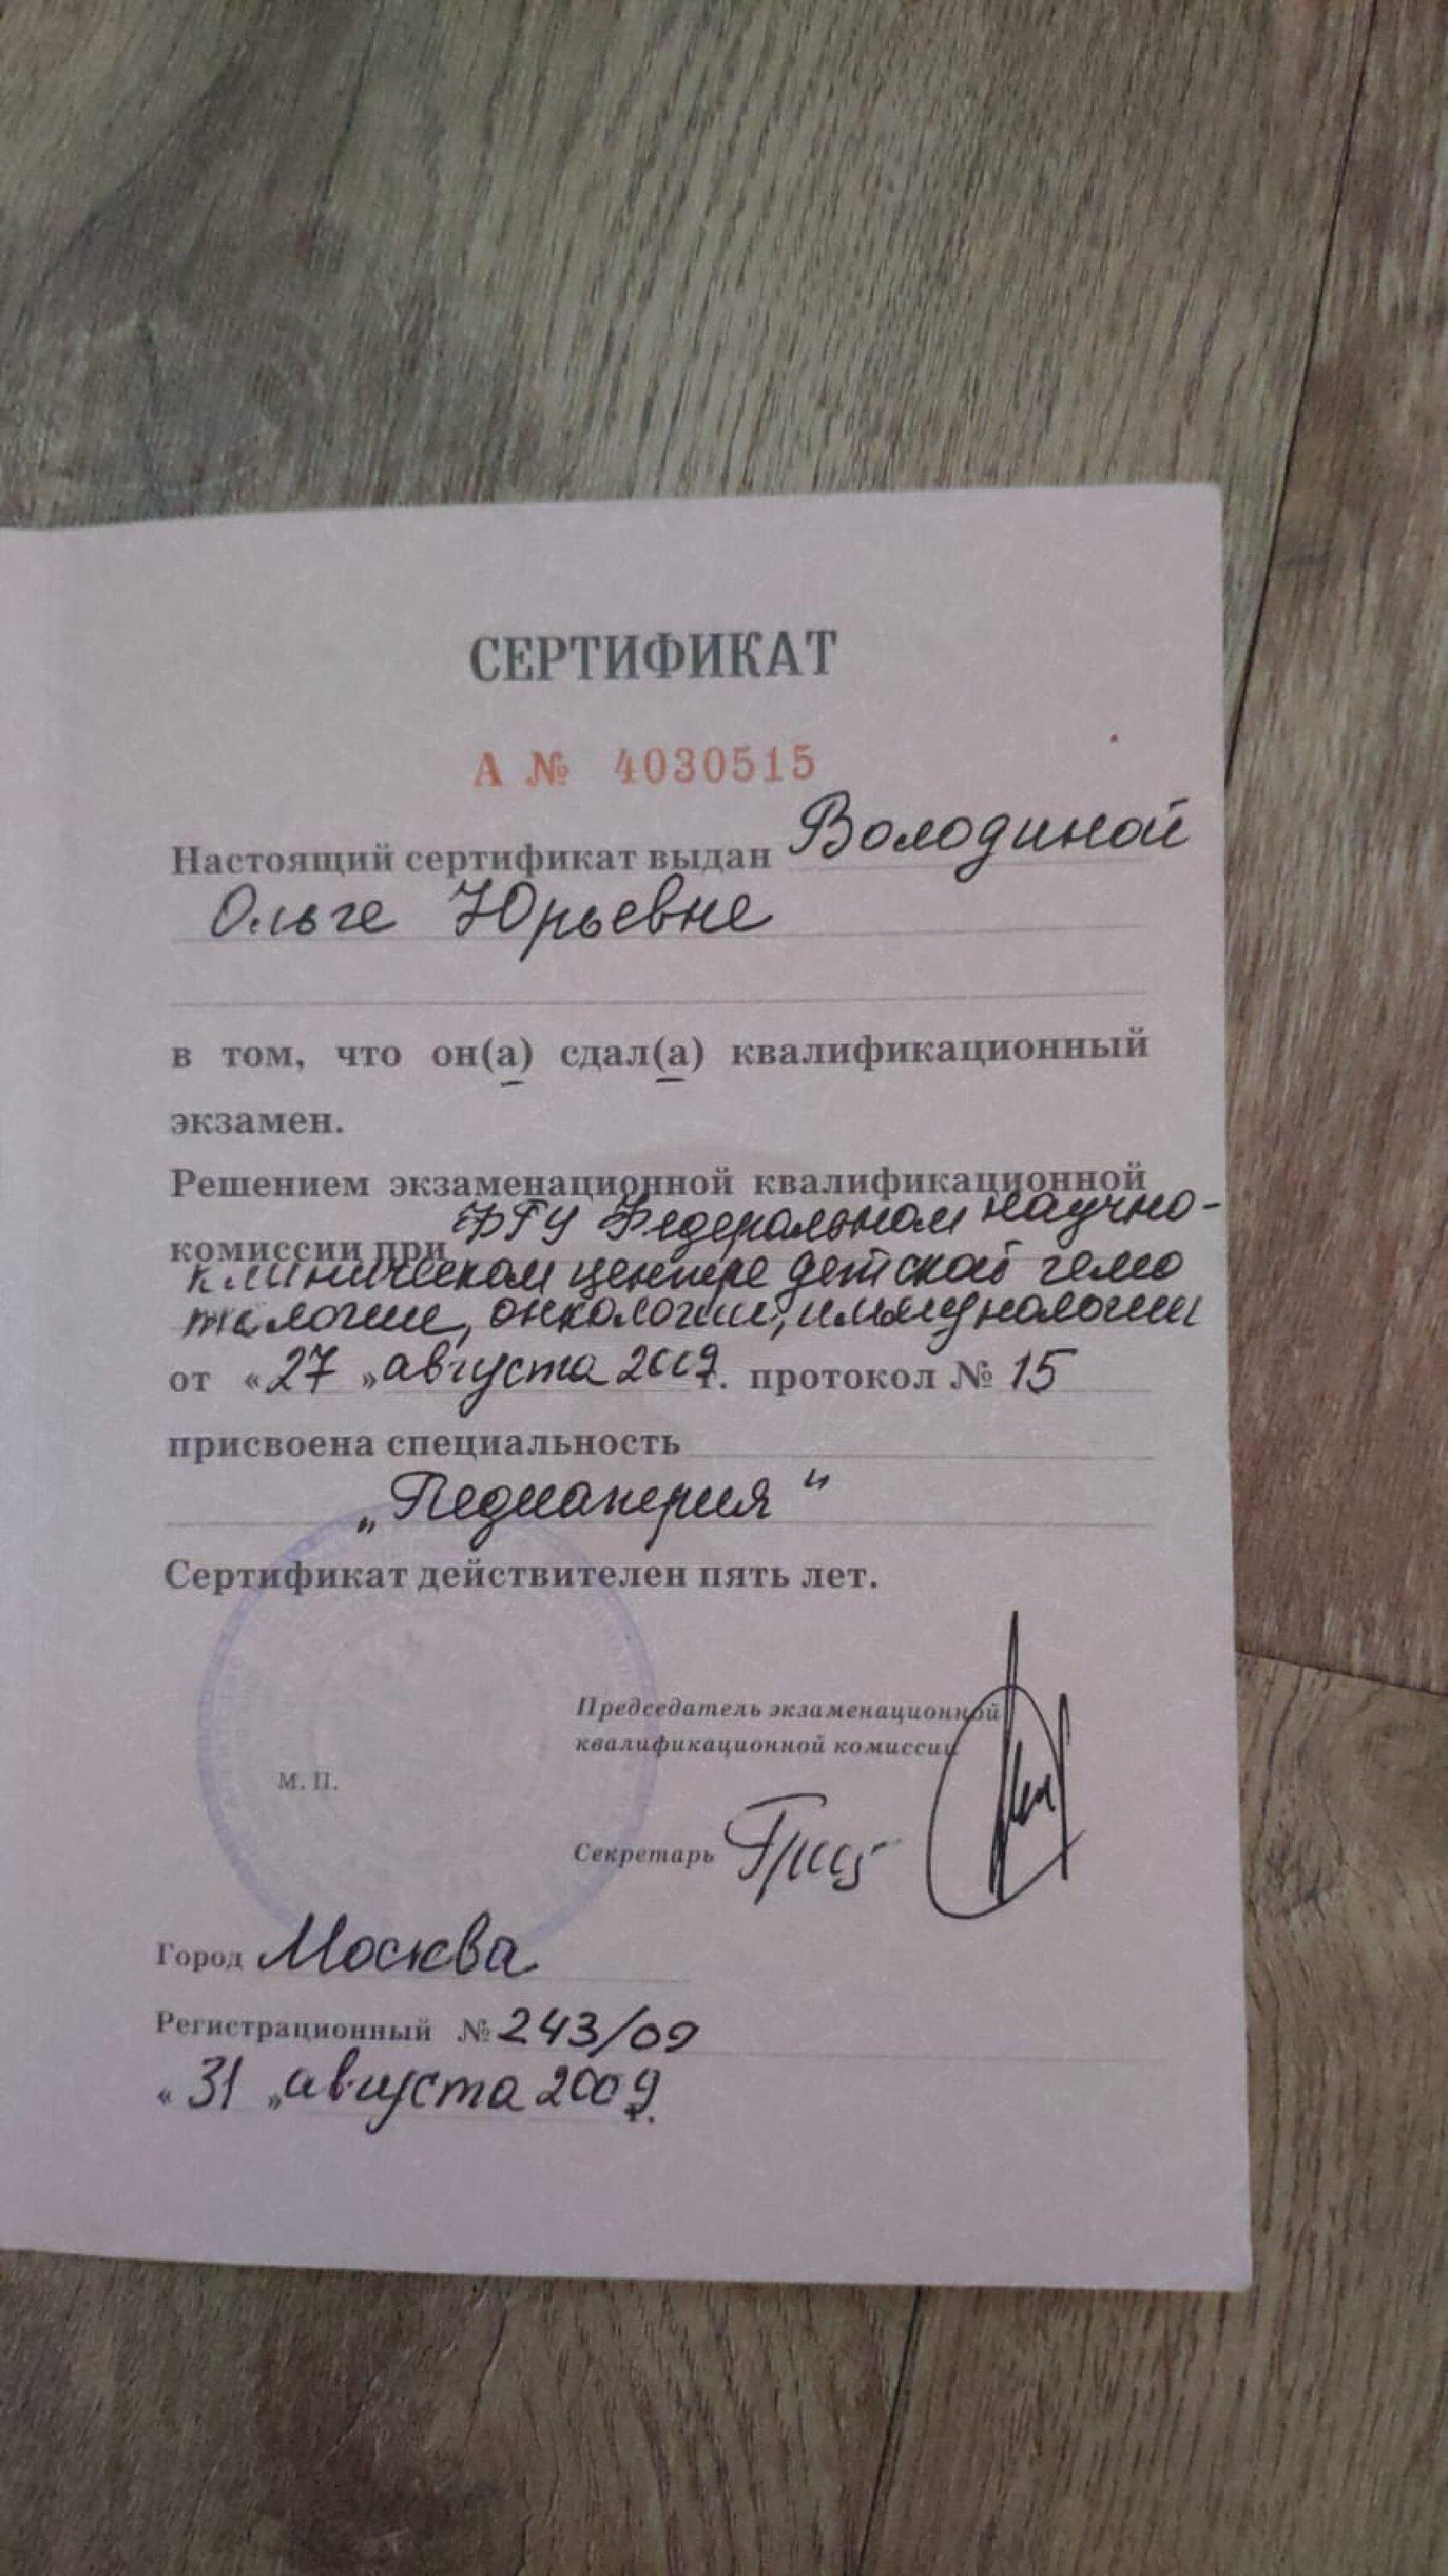 СЕРТИФИКАТ
А № 4030515
Настоящий сертификат выдан Володиной
Ольге Юрьевне
в том, что он(а) сдал(а) квалификационный
экзамен.
Решением экзаменационной квалификационной
комиссии при ФГУ Федеральном научно-
клиническом центре детской гемо
тологии, онкологии, иммунологии
от «27» августа 2009г. протокол № 15
присвоена специальность
„Педиатрия“
Сертификат действителен пять лет.
Председатель экзаменационной
квалификационной комиссии
М. П.
Секретарь
Город Москва
Регистрационный № 243/09
«31» августа 2009г.